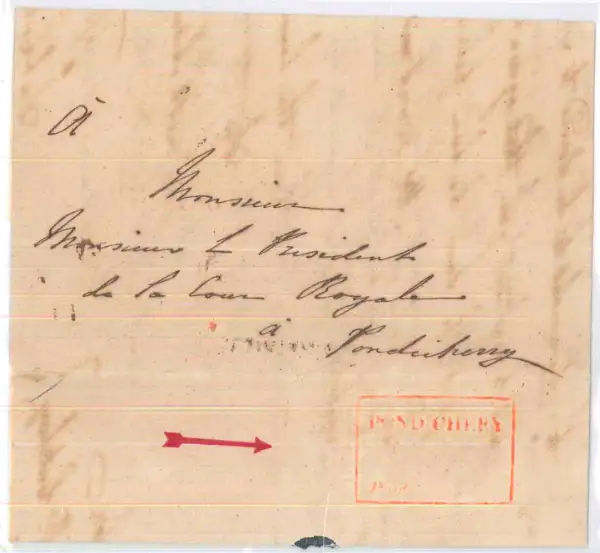 à
Monsieur
Monsieur L Président
de la Cour Royale
à Pondicherry
PONDICHERY